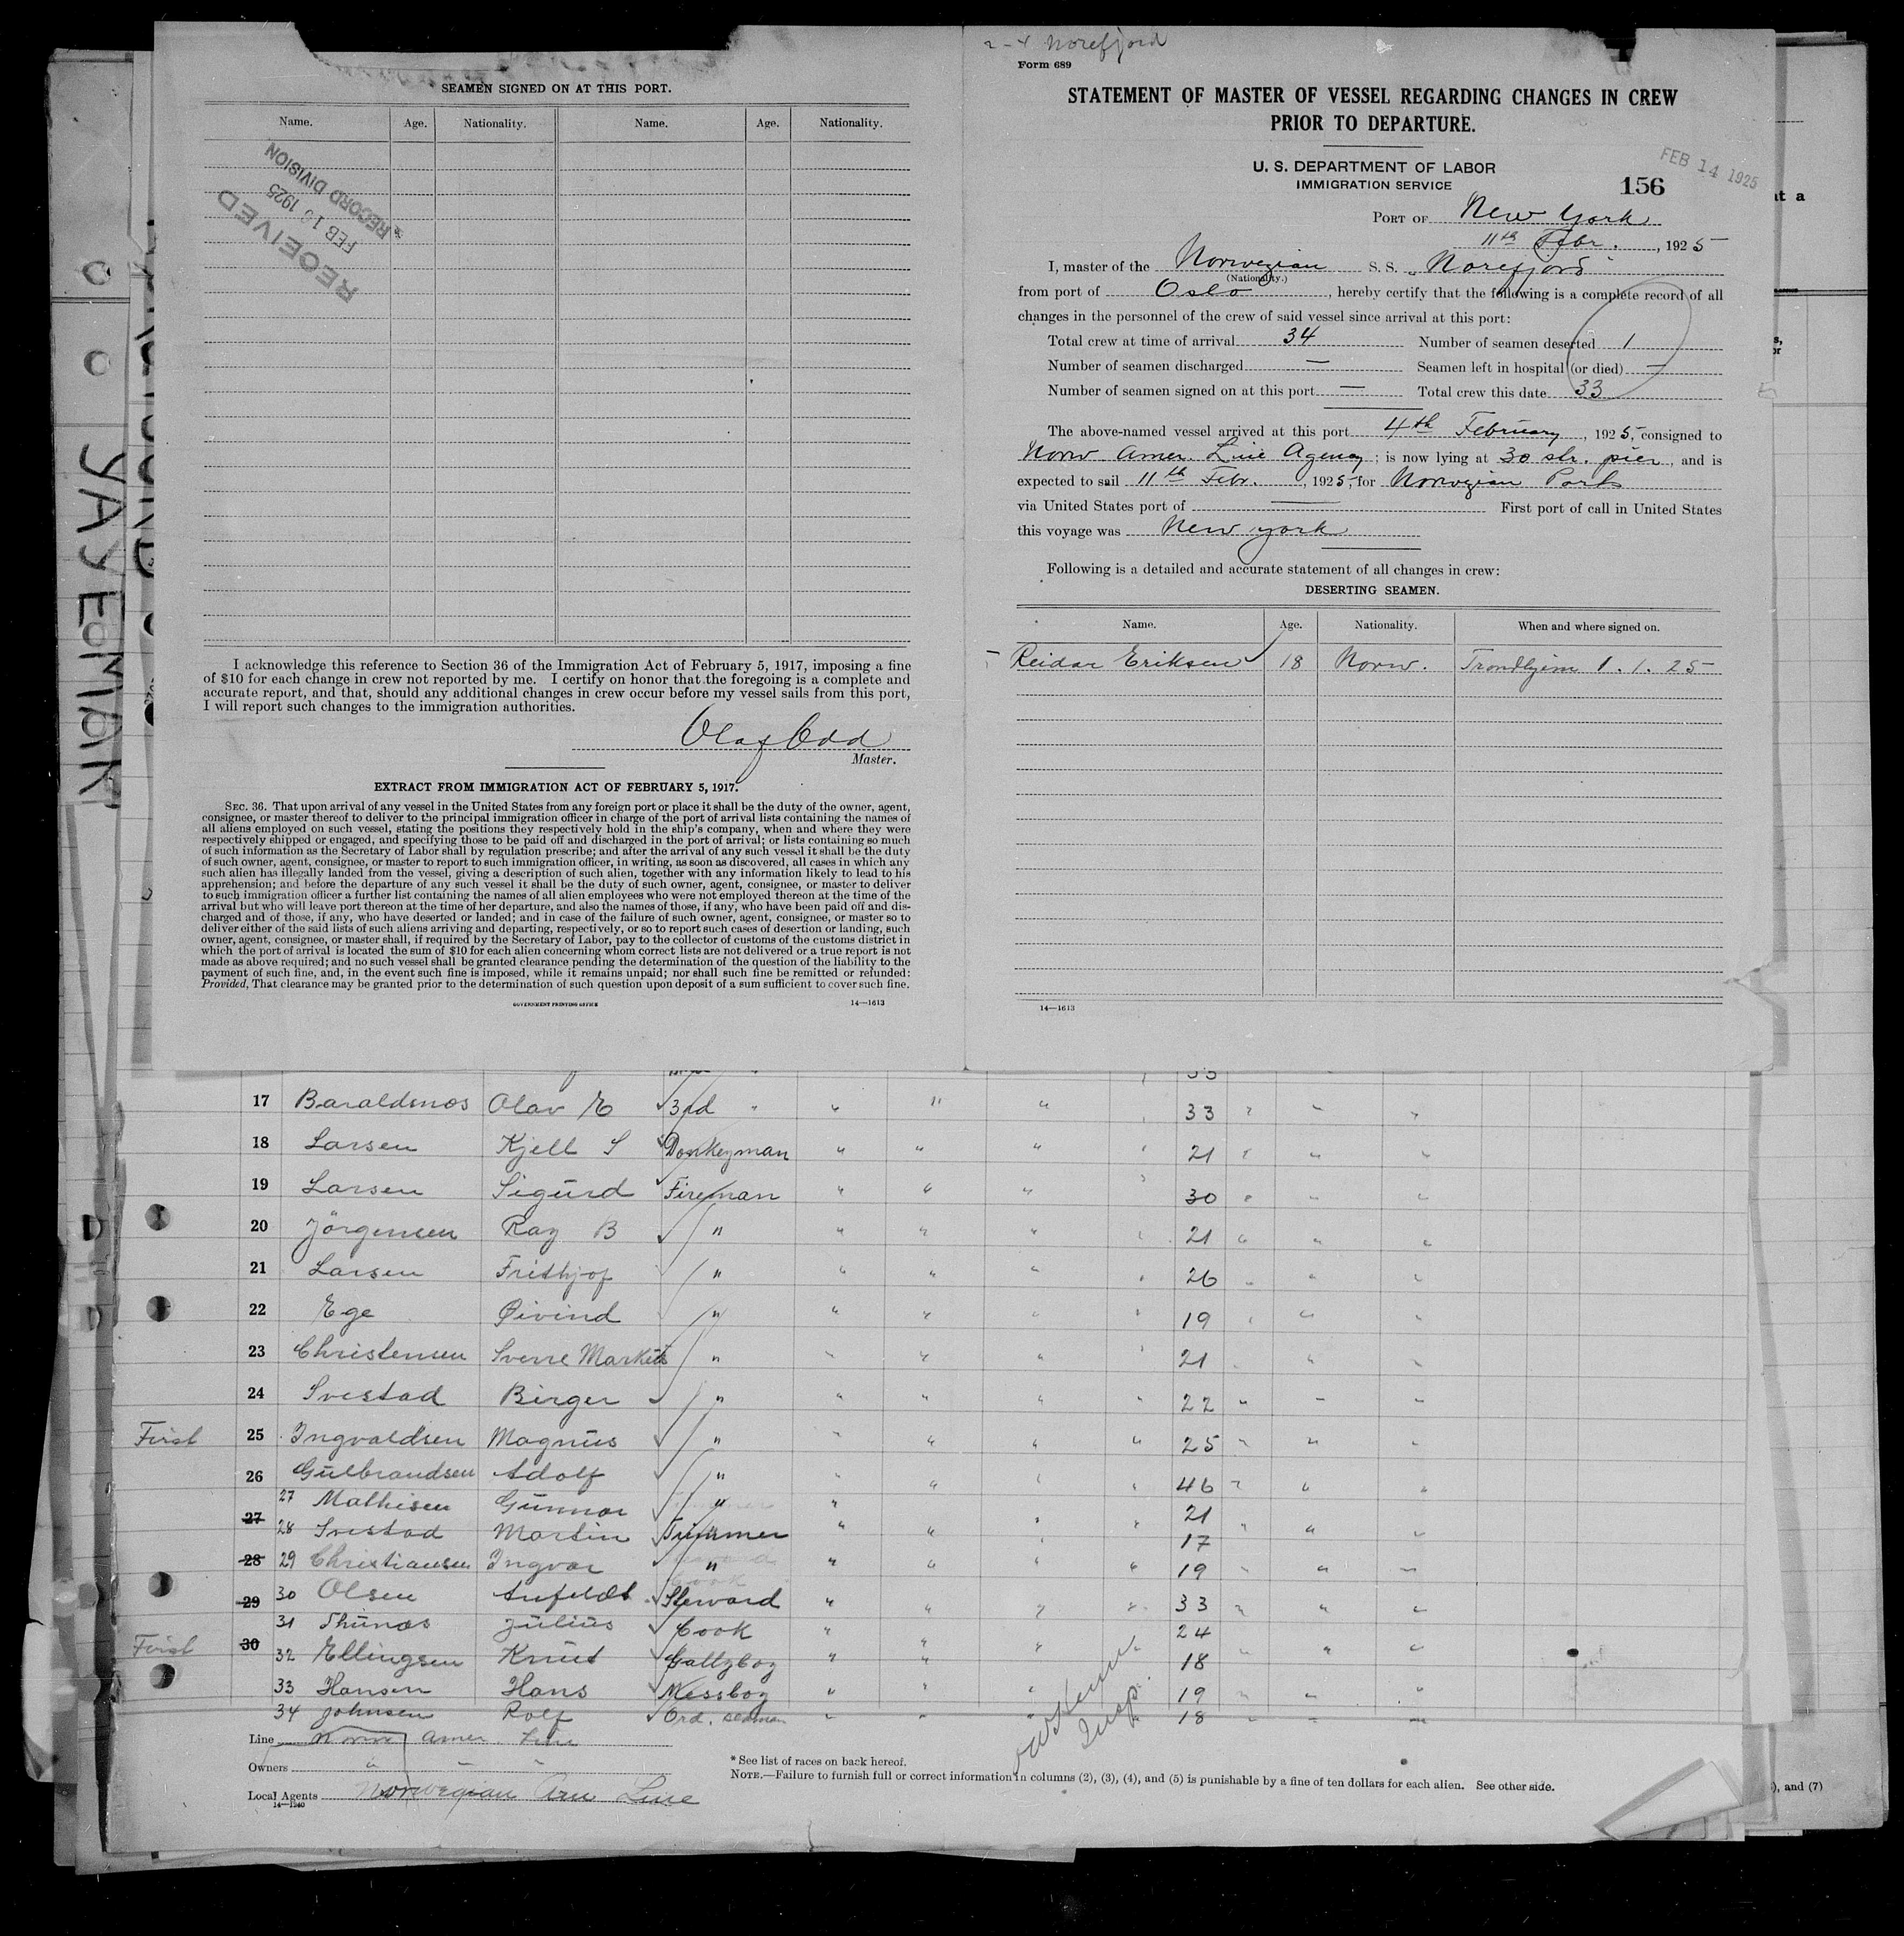 SEAMEN SIGNED ON AT THIS PORT.
Name. Age. Nationality. Name. Age. Nationality.
RECEIVED
FEB 16 1925
RECORD DIVISION
I acknowledge this reference to Section 36 of the Immigration Act of February 5, 1917, imposing a fine
of $10 for each change in crew not reported by me. I certify on honor that the foregoing is a complete and
accurate report, and that, should any additional changes in crew occur before my vessel sails from this port,
I will report such changes to the immigration authorities.
Olaf Odd
Master.
EXTRACT FROM IMMIGRATION ACT OF FEBRUARY 5, 1917.
SEC. 36. That upon arrival of any vessel in the United States from any foreign port or place it shall be the duty of the owner, agent,
consignee, or master thereof to deliver to the principal immigration officer in charge of the port of arrival lists containing the names of
all aliens employed on such vessel, stating the positions they respectively hold in the ship's company, when and where they were
respectively shipped or engaged, and specifying those to be paid off and discharged in the port of arrival; or lists containing so much
of such information as the Secretary of Labor shall by regulation prescribe; and after the arrival of any such vessel it shall be the duty
of such owner, agent, consignee, or master to report to such immigration officer, in writing, as soon as discovered, all cases in which any
such alien has illegally landed from the vessel, giving a description of such alien, together with any information likely to lead to his
apprehension; and before the departure of any such vessel it shall be the duty of such owner, agent, consignee, or master to deliver
to such immigration officer a further list containing the names of all alien employees who were not employed thereon at the time of the
arrival but who will leave port thereon at the time of her departure, and also the names of those, if any, who have been paid off and dis-
charged and of those, if any, who have deserted or landed; and in case of the failure of such owner, agent, consignee, or master so to
deliver either of the said lists of such aliens arriving and departing, respectively, or so to report such cases of desertion or landing, such
owner, agent, consignee, or master shall, if required by the Secretary of Labor, pay to the collector of customs of the customs district in
which the port of arrival is located the sum of $10 for each alien concerning whom correct lists are not delivered or a true report is not
made as above required; and no such vessel shall be granted clearance pending the determination of the question of the liability to the
payment of such fine, and, in the event such fine is imposed, while it remains unpaid; nor shall such fine be remitted or refunded:
Provided, That clearance may be granted prior to the determination of such question upon deposit of a sum sufficient to cover such fine.
GOVERNMENT PRINTING OFFICE 14—1613
2-4 Norefjord
Form 689
STATEMENT OF MASTER OF VESSEL REGARDING CHANGES IN CREW
PRIOR TO DEPARTURE.
U. S. DEPARTMENT OF LABOR
IMMIGRATION SERVICE
156
FEB 14 1925
PORT OF New York
11th Febr. , 1925
I, master of the Norwegian S. S. „Norefjord"
(Nationality.)
from port of Oslo , hereby certify that the following is a complete record of all
changes in the personnel of the crew of said vessel since arrival at this port:
Total crew at time of arrival 34 Number of seamen deserted 1
Number of seamen discharged — Seamen left in hospital (or died) —
Number of seamen signed on at this port — Total crew this date 33
The above-named vessel arrived at this port 4th February , 1925, consigned to
Norw. Amer. Line Agency ; is now lying at 30 str. pier , and is
expected to sail 11th Febr. , 1925, for Norwegian Ports
via United States port of — First port of call in United States
this voyage was New york
Following is a detailed and accurate statement of all changes in crew:
DESERTING SEAMEN.
Name. Age. Nationality. When and where signed on.
Reidar Eriksen 18 Norw. Trondhjem 1. 1. 25
14—1613
17 Baraldsnes Olav E 3rd " " " " 33 " " "
18 Larsen Kjell S Donkeyman " " " " 21 " " "
19 Larsen Sigurd Fireman " " " " 30 " " "
20 Jörgensen Ray B " " " " " 21 " " "
21 Larsen Frithjof " " " " " 26 " " "
22 Ege Øivind " " " " " 19 " " "
23 Christensen Sverre Markus " " " " " 21 " " "
24 Svestad Birger " " " " " 22 " " "
First 25 Ingvaldsen Magnus " " " " " 25 " " "
26 Gulbrandsen Adolf " " " " " 46 " " "
27 Mathisen Gunnar " " 21
27 28 Svestad Martin Trimmer " " " " 17 " " "
28 29 Christiansen Ingvar " " " " " 19 " " "
29 30 Olsen Anfeldt Steward " " " " 33 " " "
31 Thunes Julius Cook " 24
First 30 32 Ellingsen Knut Gallyboy " " " " 18 " " "
33 Hansen Hans Messboy " " " 19 " " "
34 Johnsen Rolf Ord. seaman " " " " 18 " " "
Insp.
Line Norw. Amer. Line
Owners " " "
Local Agents Norwegian Am Line
14—1240
* See list of races on back hereof.
NOTE.—Failure to furnish full or correct information in columns (2), (3), (4), and (5) is punishable by a fine of ten dollars for each alien. See other side.
, and (7)